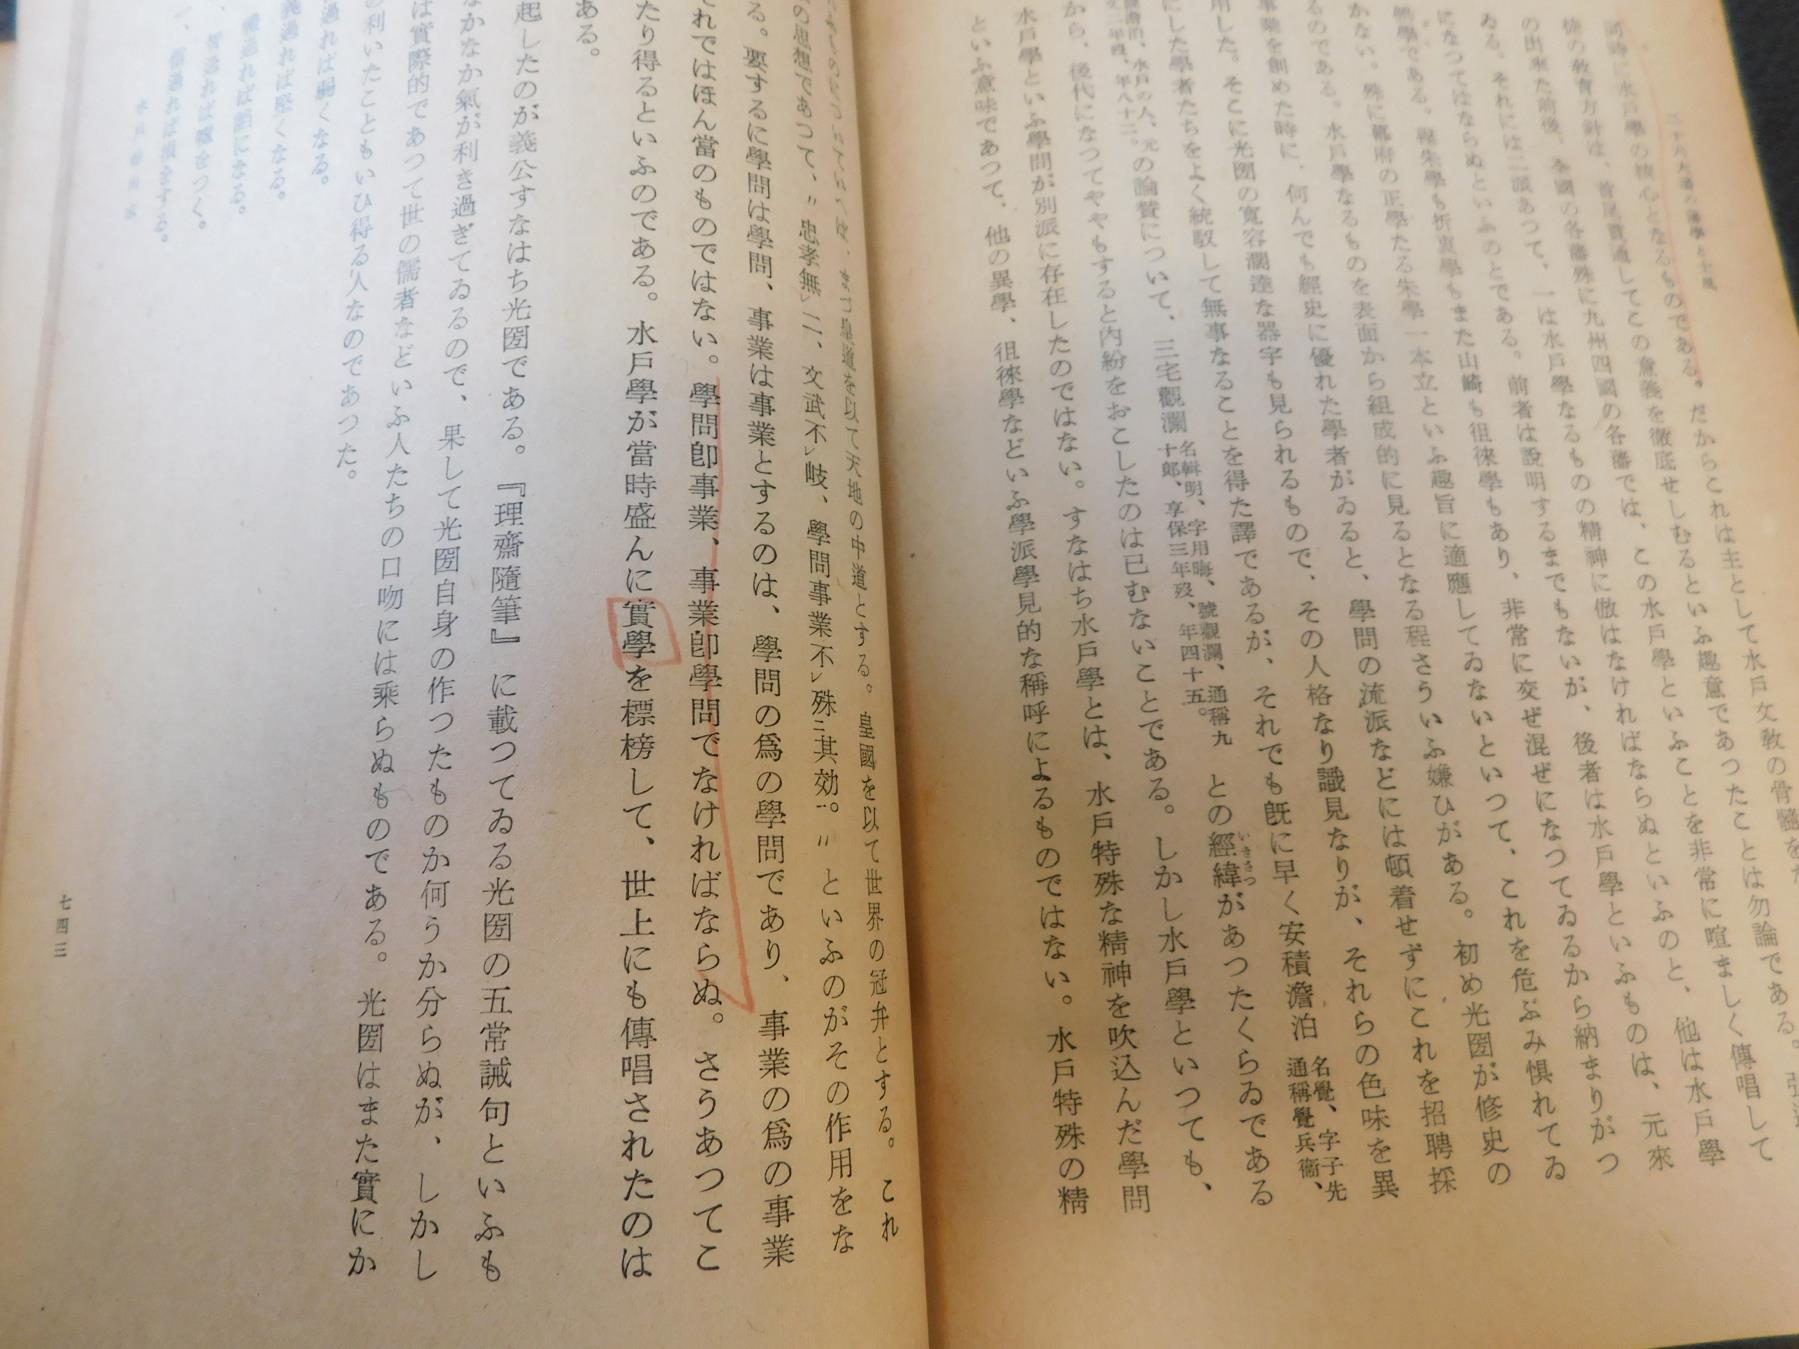 二十八大藩の藩學と士風
水戶文教の骨髓をな
同時に水戶學の核心となるものである。だからこれは主として
といふ趣意であつたことは勿論である。
徒の教育方針は、首尾貫通してこの意義を徹底せしむるといふ
ことを非常に喧ましく傳唱して
の出來た前後、全國の各藩殊に九州四國の各藩では、この水戶學といふ
ならぬといふのと、他は水戶學
ゐる。それには二派あつて、一は水戶學なるものの精神に倣はなければ
になつてはならぬといふのとである。前者は說明するまでもないが、後者は水戶學といふものは、元來
無學である。程朱學も折衷學もまた山崎も徂徠學もあり、非常に交ぜ混ぜになつてゐるから納まりがつ
かない。殊に幕府の正學たる朱學一本立といふ趣旨に適應してゐないといつて、これを危ぶみ惧れてゐ
るのである。水戶學なるものを表面から組成的に見るとなる程さういふ嫌ひがある。初め光圀が修史の
事業を創めた時に、何んでも經史に優れた學者がゐると、學問の流派などには頓着せずにこれを招聘採
用した。そこに光圀の寬容濶達な器宇も見られるもので、その人格なり識見なりが、それらの色味を異
にした學者たちをよく統馭して無事なることを得た譯であるが、それでも旣に早く安積澹泊 名覺、字子先 通稱覺兵衞、
號澹泊、水戶の人、元文二年歿、年八十二。の論贊について、三宅觀瀾 名緝明、字用晦、號觀瀾、通稱九十郎、享保三年歿、年四十五。との經緯いきさつがあつたくらゐである
から、後代になつてややもすると內紛をおこしたのは已むないことである。しかし水戶學といつても、
水戶學といふ學問が別派に存在したのではない。すなはち水戶學とは、水戶特殊な精神を吹込んだ學問
といふ意味であつて、他の異學、徂徠學などいふ學派學見的な稱呼によるものではない。水戶特殊の精
ものについていへば、まづ皇道を以て天地の中道とする。皇國を以て世界の冠弁とする。これ
の思想であつて、〃忠孝無レ二、文武不レ岐、學問事業不レ殊ニ其効。〃といふのがその作用をな
る。要するに學問は學問、事業は事業とするのは、學問の爲の學問であり、事業の爲の事業
それではほん當のものではない。學問卽事業、事業卽學問でなければならぬ。さうあつてこ
たり得るといふのである。水戶學が當時盛んに實學を標榜して、世上にも傳唱されたのは
ある。
起したのが義公すなはち光圀である。『理齋隨筆』に載つてゐる光圀の五常誡句といふも
なかなか氣が利き過ぎてゐるので、果して光圀自身の作つたものか何うか分らぬが、しかし
は實際的であつて世の儒者などいふ人たちの口吻には乘らぬものである。光圀はまた實にか
の利いたこともいひ得る人なのであつた。
過れば弱くなる。
義過れば堅くなる。
禮過れば諂になる。
智過れば噓をつく。
信過れば損をする。
七四三